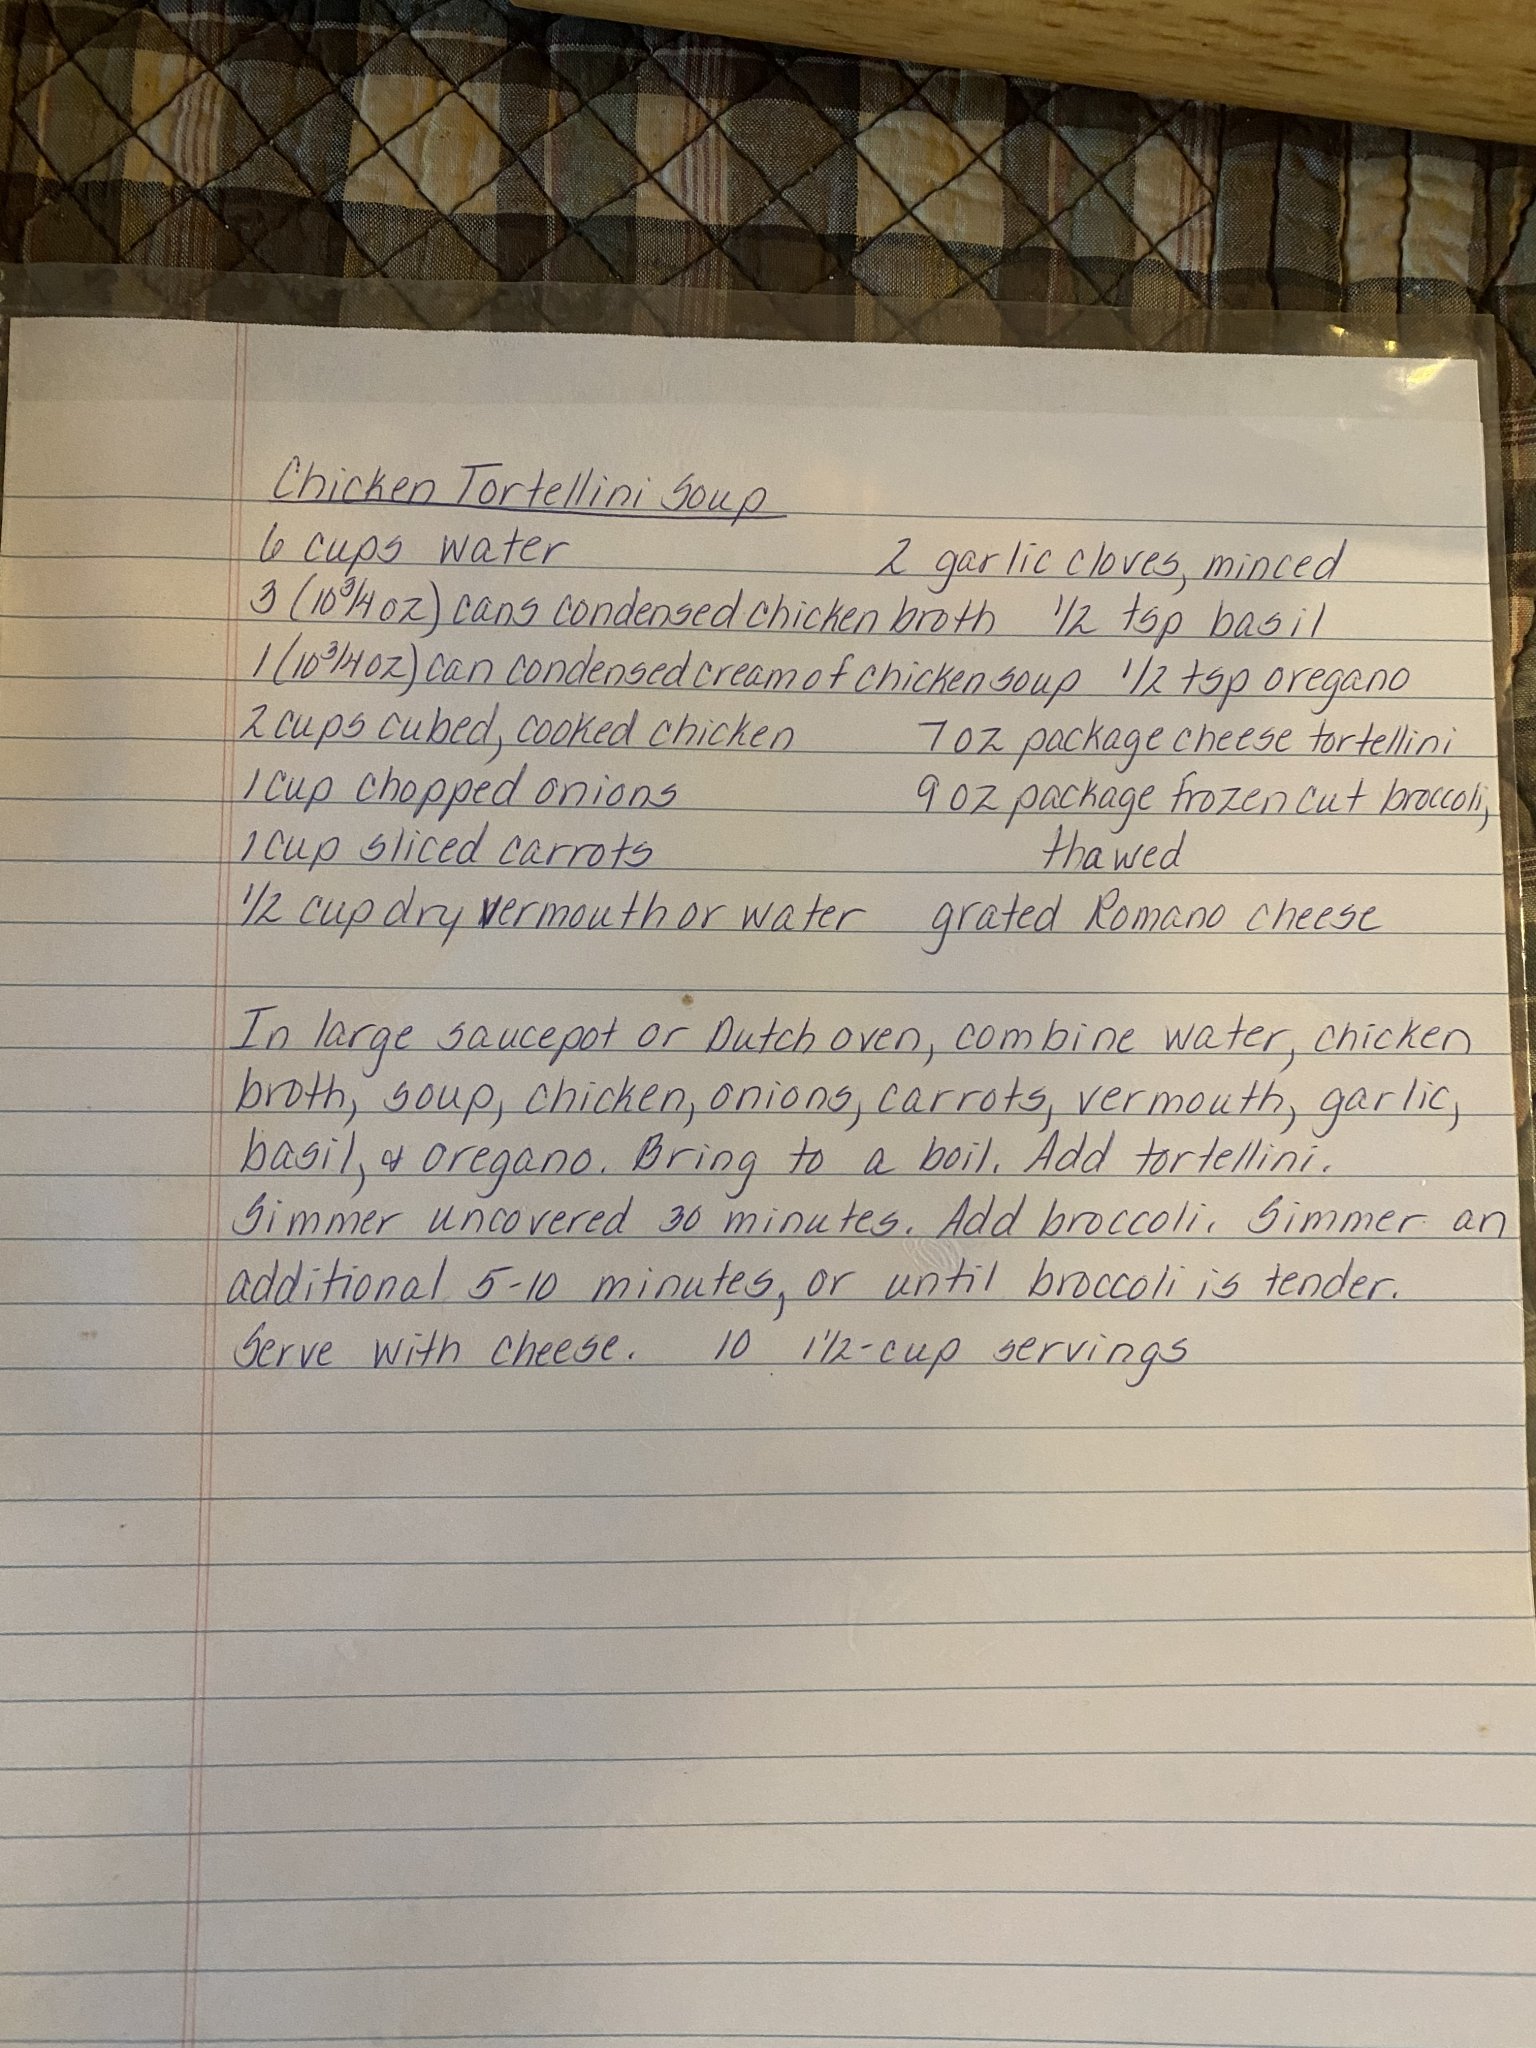 Chicken Tortellini Soup
6 cups water 2 garlic cloves, minced
3 (10 3/4 oz) cans condensed chicken broth 1/2 tsp basil
1 (10 3/4 oz) can condensed cream of chicken soup 1/2 tsp oregano
2 cups cubed, cooked chicken 7 oz package cheese tortellini
1 cup chopped onions 9 oz package frozen cut broccoli,
1 cup sliced carrots thawed
1/2 cup dry vermouth or water grated Romano cheese
In large saucepot or Dutch oven, combine water, chicken
broth, soup, chicken, onions, carrots, vermouth, garlic,
basil, & oregano. Bring to a boil. Add tortellini.
Simmer uncovered 30 minutes. Add broccoli. Simmer an
additional 5-10 minutes, or until broccoli is tender.
Serve with cheese. 10 1 1/2-cup servings